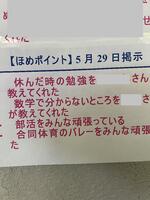 せた
【ほめポイント】5月29日掲示
休んだ時の勉強を さん
教えてくれた
数学で分からないところを
が教えてくれた
部活をみんな頑張っている
合同体育のバレーをみんな頑張
た